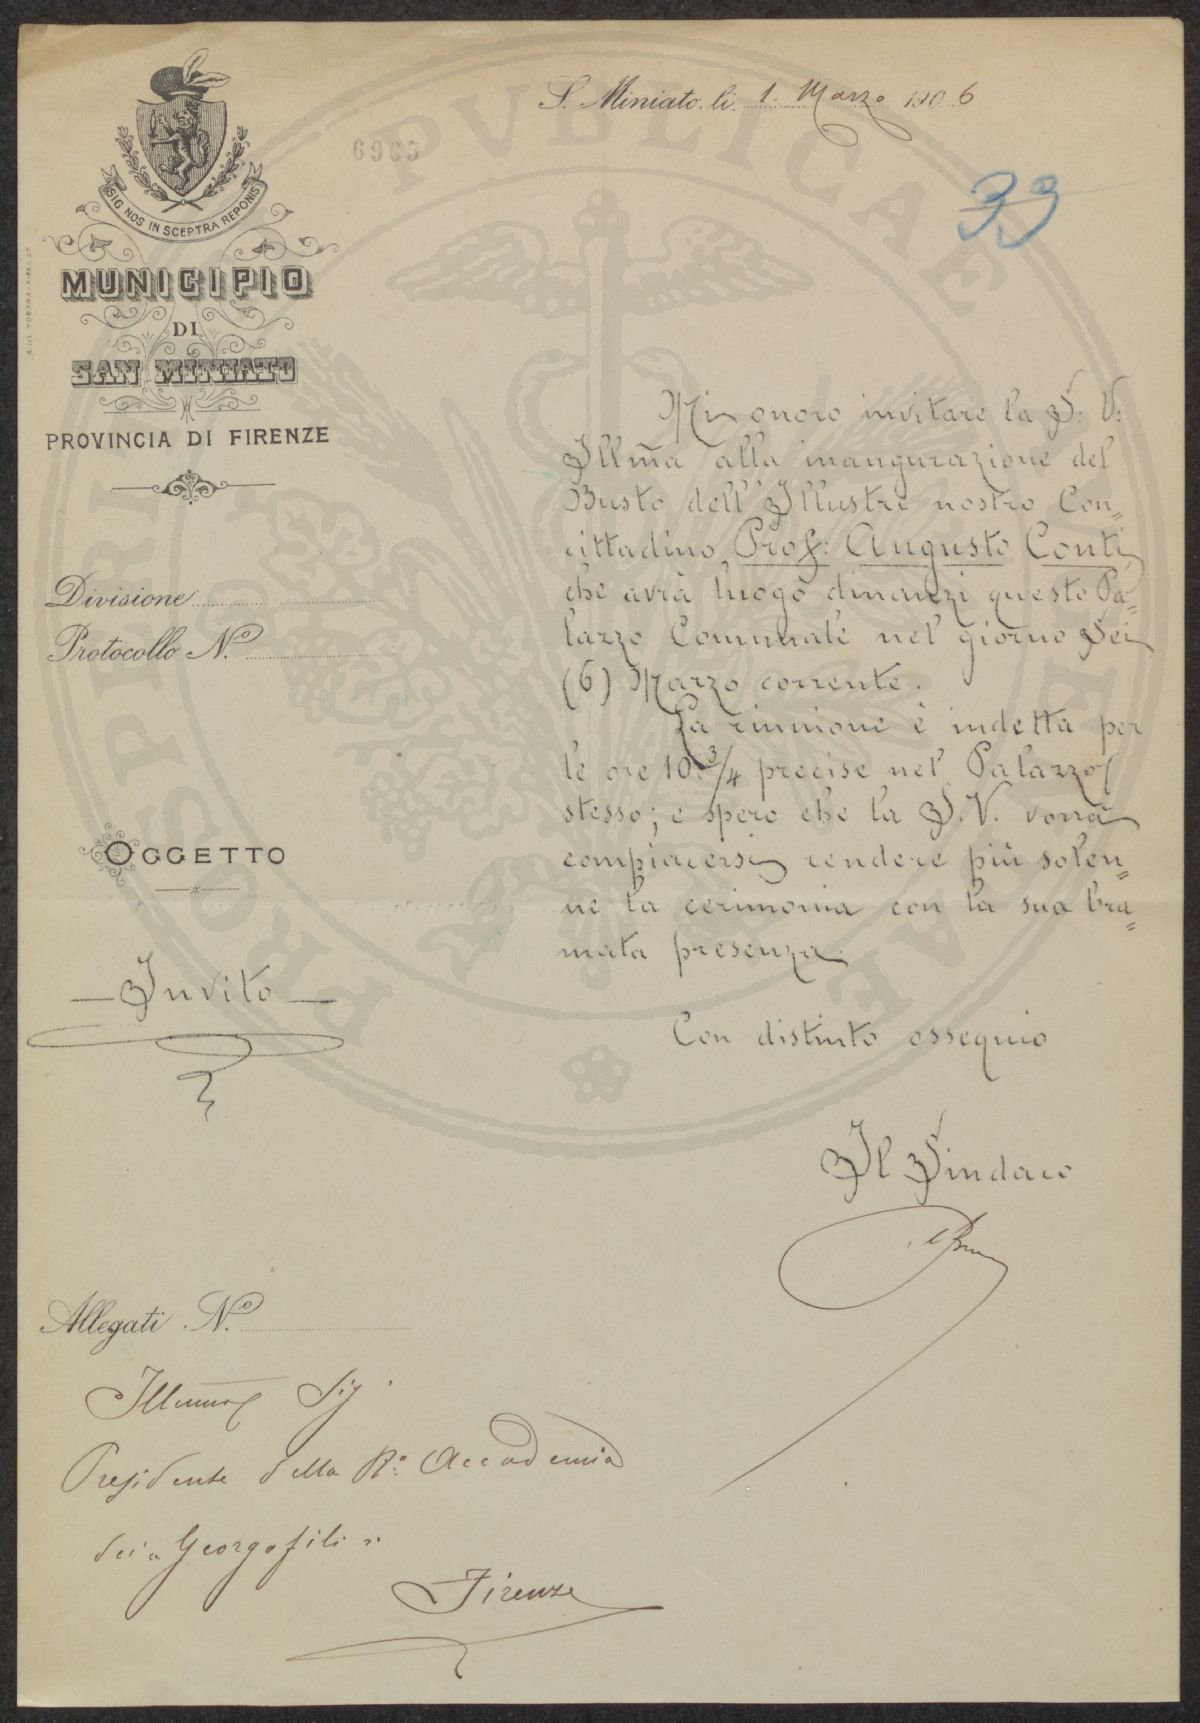 S. Miniato, li 1. Marzo 1906
6965
33
SIG NOS IN SCEPTRA REPONIS
MUNICIPIO
DI
SAN MINIATO
PROVINCIA DI FIRENZE
Divisione
Protocollo N.º
OGGETTO
— Invito —
Mi onoro invitare la S: V:
Ill͞ma alla inaugurazione del
Busto dell'Illustre nostro Con„
cittadino Prof: Augusto Conti
che avrà luogo dinanzi questo Pa„
lazzo Comunale nel giorno Sei
(6) Marzo corrente.
La riunione è indetta per
le ore 10:3/4 precise nel Palazzo
stesso; e spero che la S.V. vorrà
compiacersi rendere più solen„
ne la cerimonia con la sua bra„
mata presenza.
Con distinto ossequio
Il Sindaco
Allegati N.º
Illmo Sig
Presidente della R.ª Accademia
dei "Georgofili"
Firenze
PROSPERITATI PVBLICAE AVGENDAE